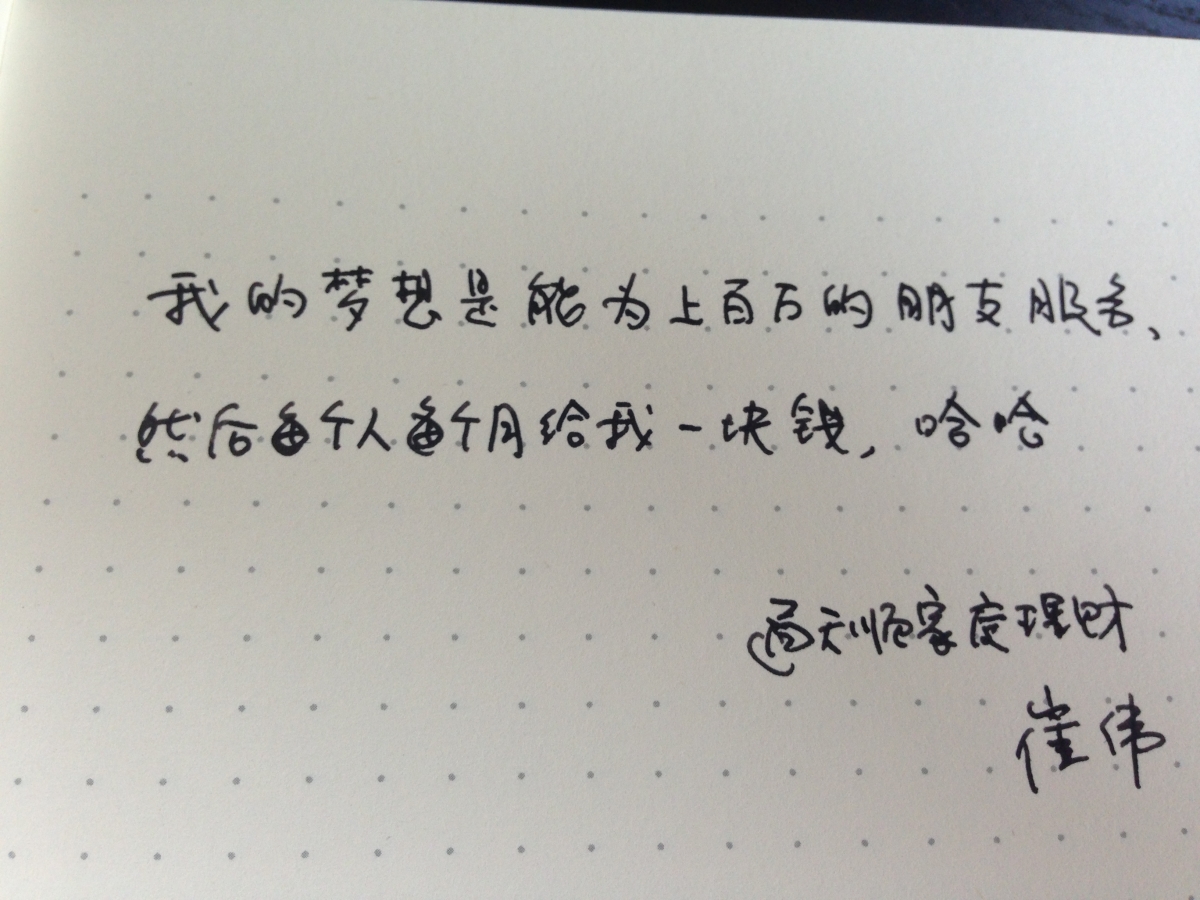 我的梦想是能为上百万的朋友服务、
然后每个人每个月给我一块钱，哈哈
通天顺家庭理财
崔伟